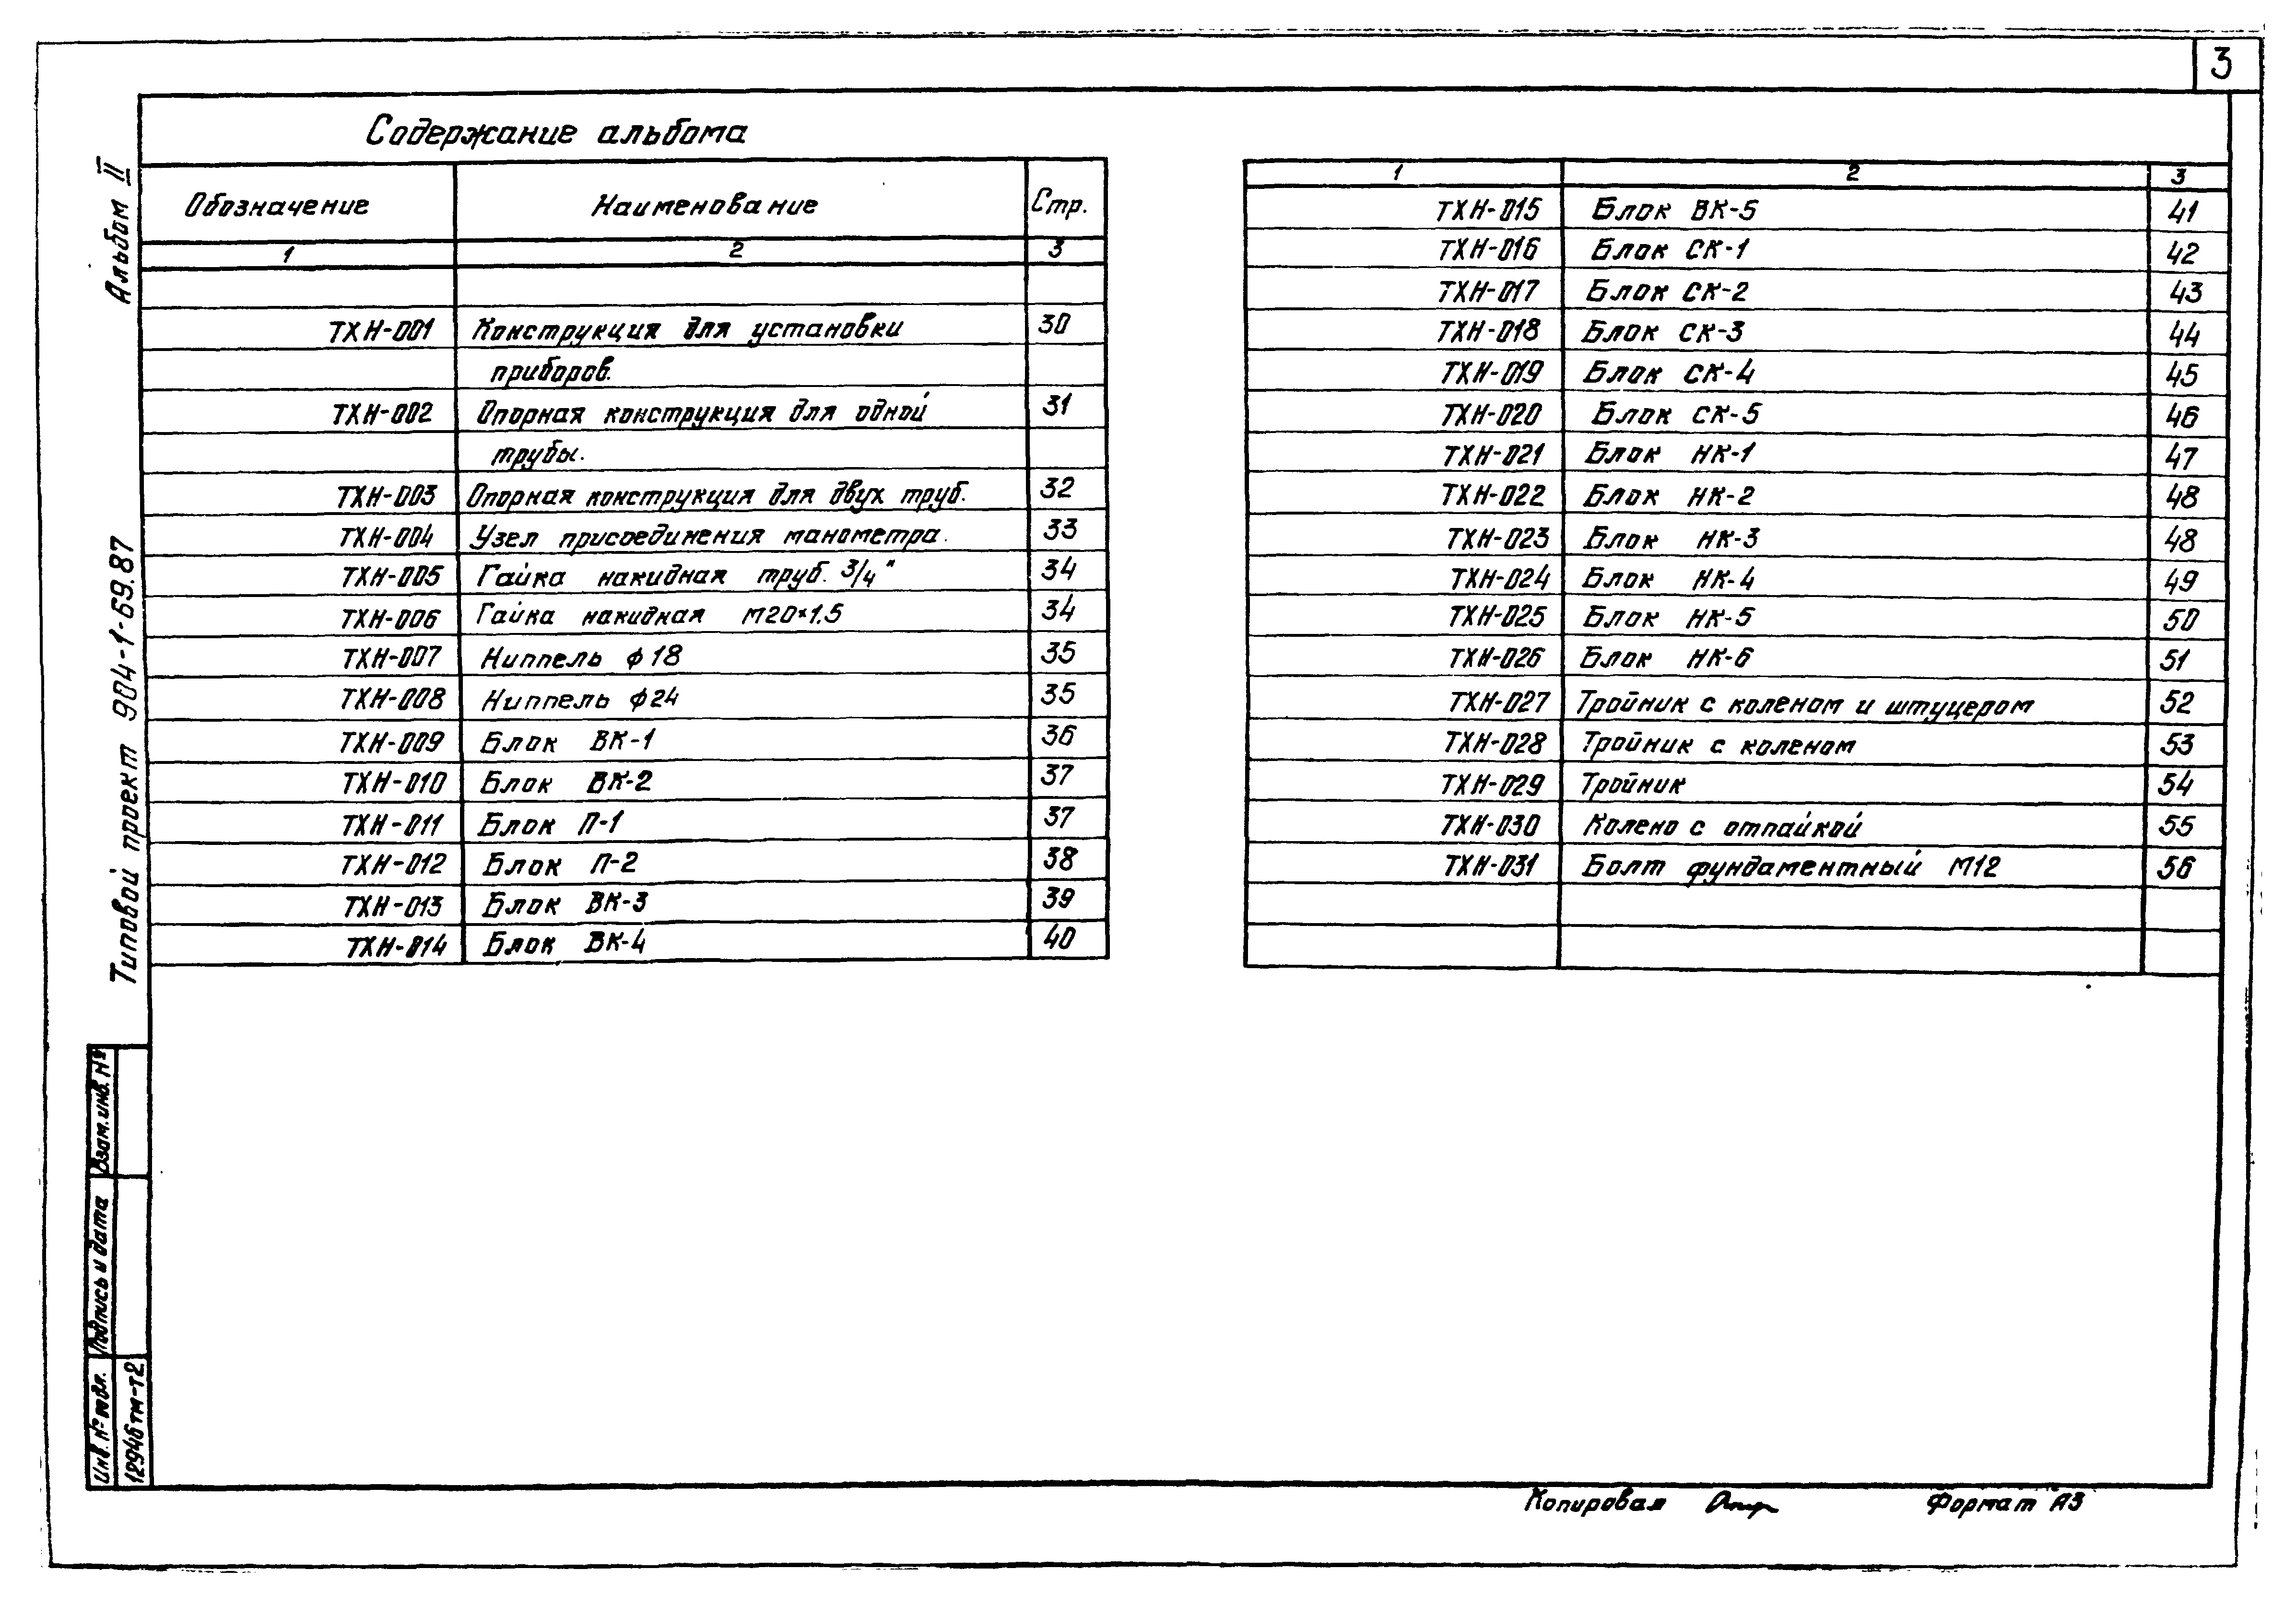 3
Содержание альбома
Альбом II
Типовой проект 904-1-69.87
Обозначение Наименование Стр.
1 2 3
ТХН-001 Конструкция для установки 30
приборов.
ТХН-002 Опорная конструкция для одной 31
трубы.
ТХН-003 Опорная конструкция для двух труб. 32
ТХН-004 Узел присоединения манометра. 33
ТХН-005 Гайка накидная труб. 3/4" 34
ТХН-006 Гайка накидная М20×1.5 34
ТХН-007 Ниппель ф18 35
ТХН-008 Ниппель ф24 35
ТХН-009 Блок ВК-1 36
ТХН-010 Блок ВК-2 37
ТХН-011 Блок П-1 37
ТХН-012 Блок П-2 38
ТХН-013 Блок ВК-3 39
ТХН-014 Блок ВК-4 40
1 2 3
ТХН-015 Блок ВК-5 41
ТХН-016 Блок СК-1 42
ТХН-017 Блок СК-2 43
ТХН-018 Блок СК-3 44
ТХН-019 Блок СК-4 45
ТХН-020 Блок СК-5 46
ТХН-021 Блок НК-1 47
ТХН-022 Блок НК-2 48
ТХН-023 Блок НК-3 48
ТХН-024 Блок НК-4 49
ТХН-025 Блок НК-5 50
ТХН-026 Блок НК-6 51
ТХН-027 Тройник с коленом и штуцером 52
ТХН-028 Тройник с коленом 53
ТХН-029 Тройник 54
ТХН-030 Колено с отпайкой 55
ТХН-031 Болт фундаментный М12 56
Взам. инв. №
Подпись и дата
Инв. № подл.
12946тм-т2
Копировал Формат А3